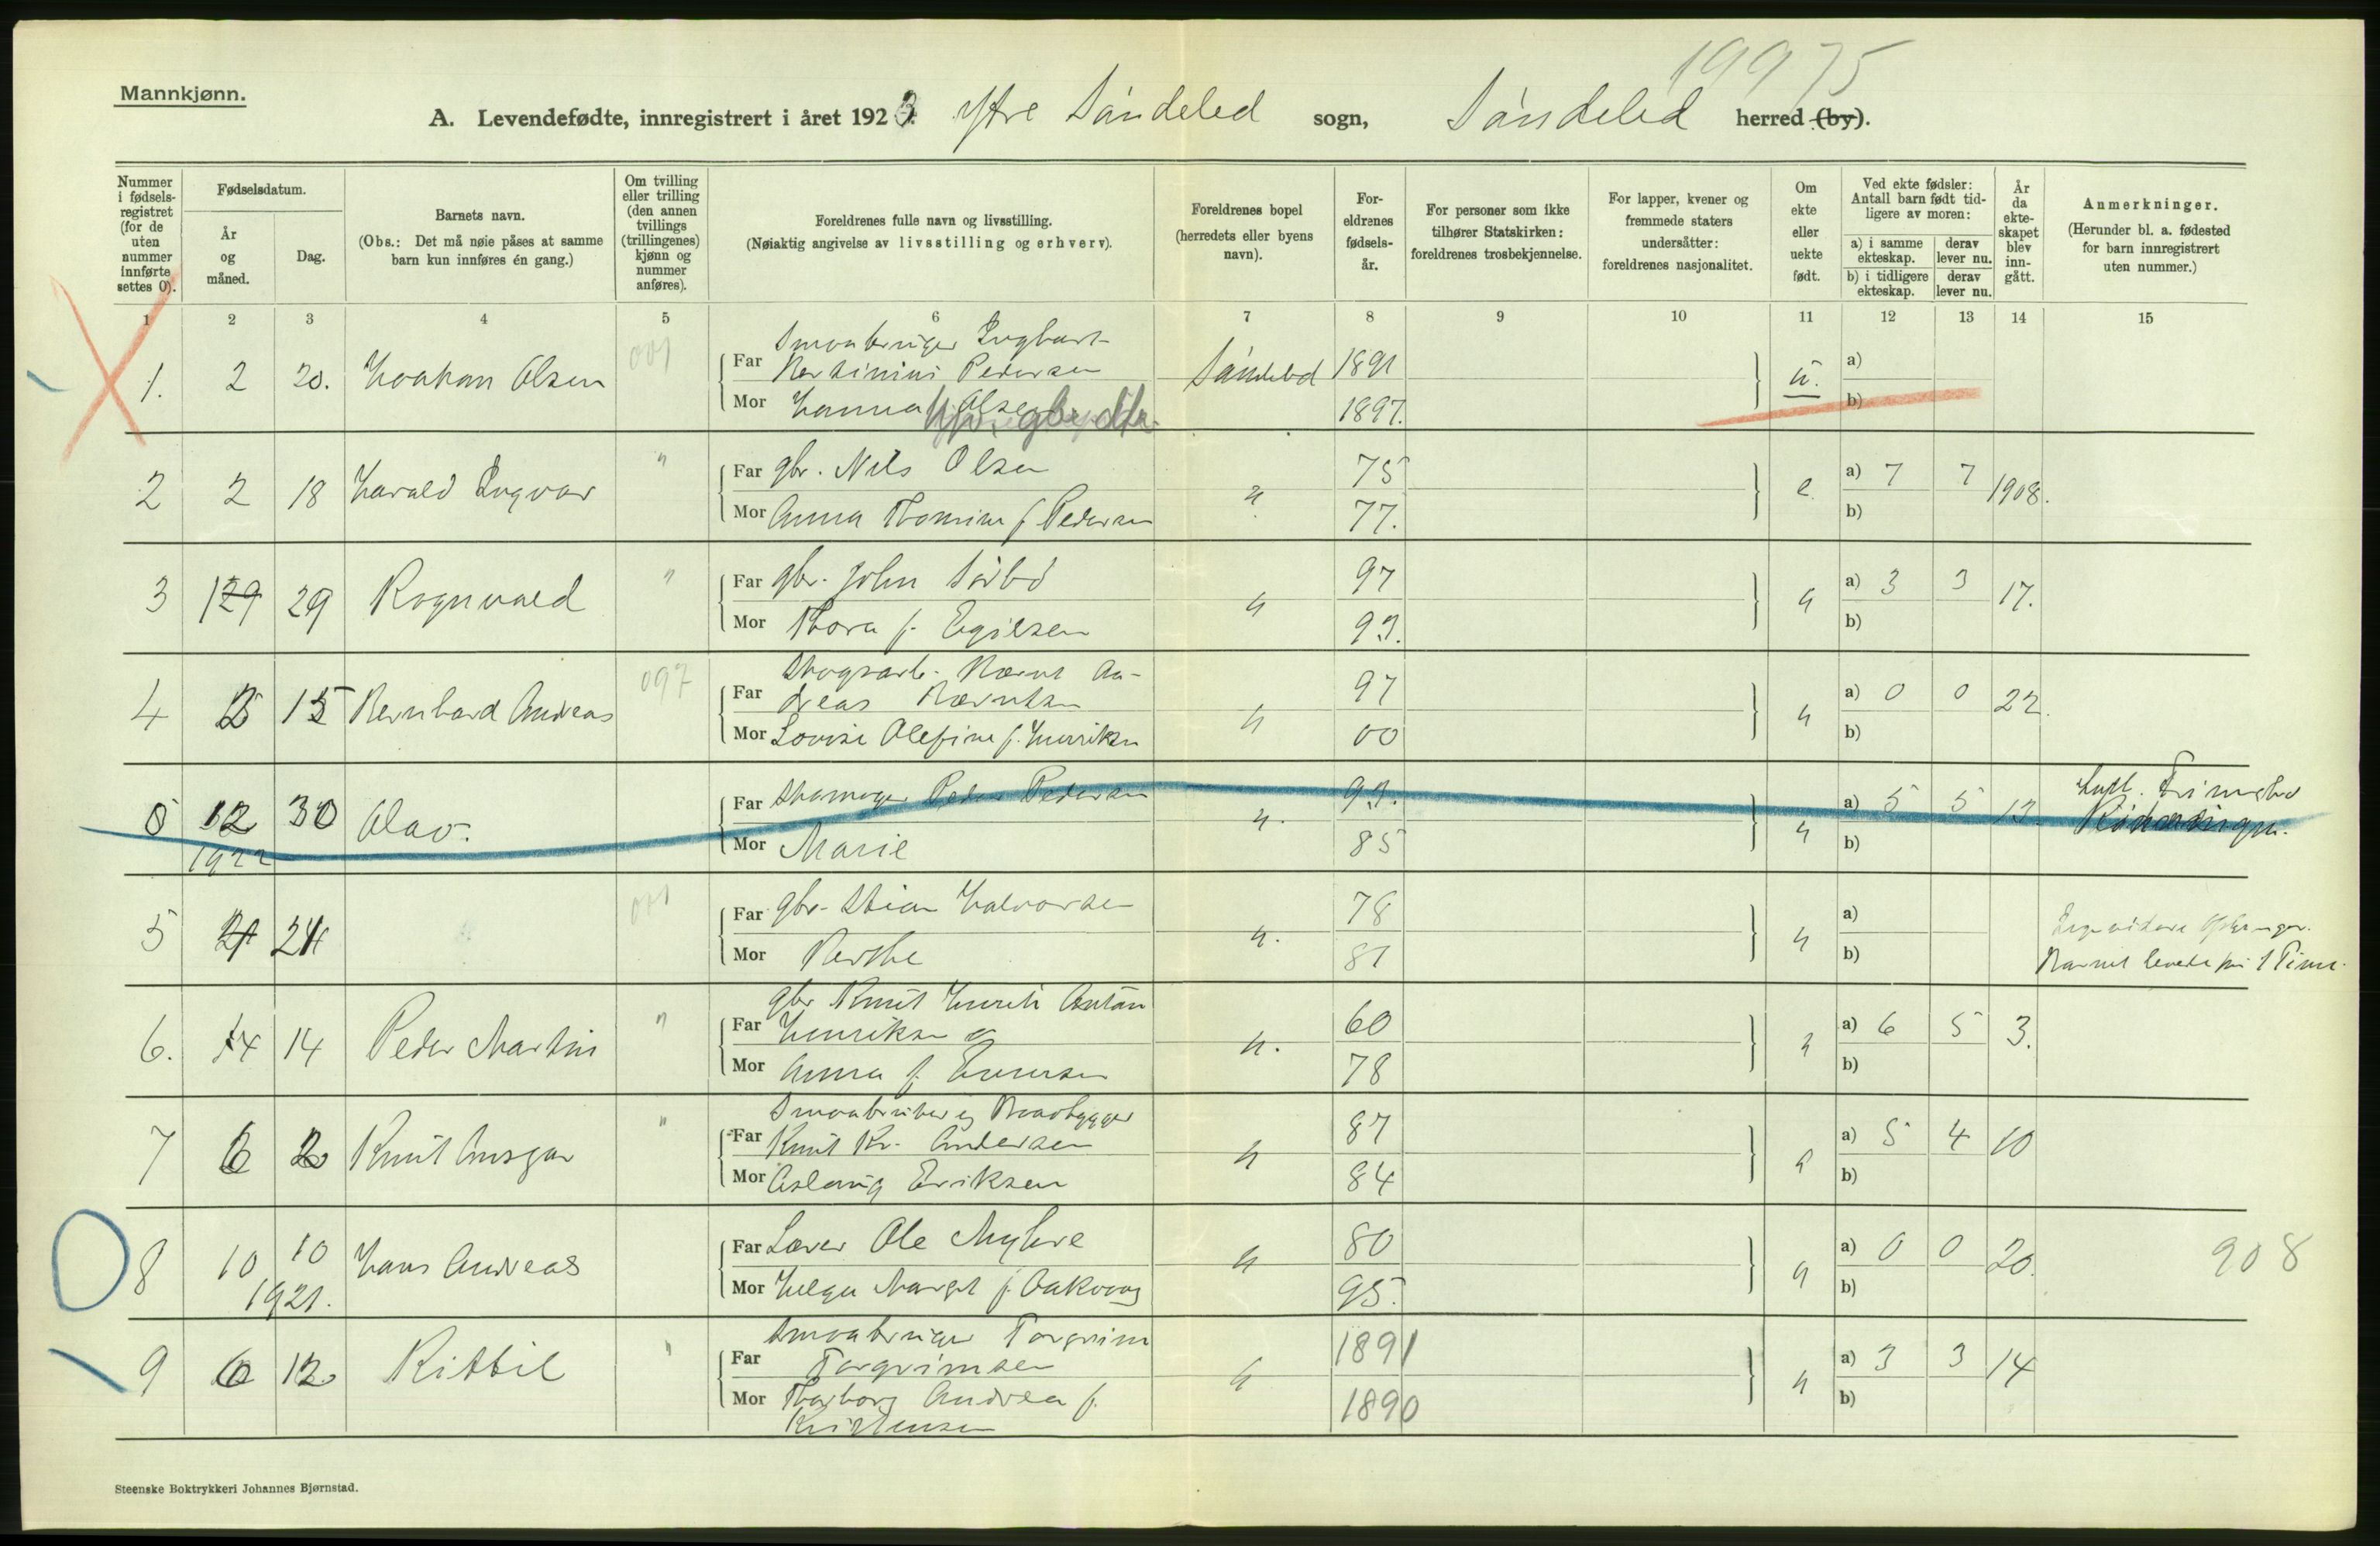 19975
Mannkjønn.
A. Levendefødte, innregistrert i året 1923. Ytre Søndeled sogn, Søndeled herred (by).
Nummer i fødselsregistret (for de uten nummer innførte settes 0).
Fødselsdatum.
År og måned.
Dag.
Barnets navn.
(Obs.: Det må nøie påses at samme barn kun innføres én gang.)
Om tvilling eller trilling (den annen tvillings (trillingenes) kjønn og nummer anføres).
Foreldrenes fulle navn og livsstilling.
(Nøiaktig angivelse av livsstilling og erhverv).
Foreldrenes bopel (herredets eller byens navn).
Foreldrenes fødselsår.
For personer som ikke tilhører Statskirken: foreldrenes trosbekjennelse.
For lapper, kvener og fremmede staters undersåtter: foreldrenes nasjonalitet.
Om ekte eller uekte født.
Ved ekte fødsler: Antall barn født tidligere av moren:
a) i samme ekteskap.
derav lever nu.
b) i tidligere ekteskap.
derav lever nu.
År da ekteskapet blev inngått.
Anmerkninger.
(Herunder bl. a. fødested for barn innregistrert uten nummer.)
1 2 3 4 5 6 7 8 9 10 11 12 13 14 15
1. 2 20. Haakon Olsen 001
Far Smaabruger Ingbart
Pedersen Søndeled 1891 u. a)
Mor Hanna Olsen gbr. dtr. 1897. b)
2 2 18 Harald Ingvar "
Far gbr. Nils Olsen 75 e. a) 7 7 1908.
Mor Anna Thomine f. Pedersen " 77. b)
3 29 Rognvald "
Far gbr. John Sørbø 97 a) 3 3 17.
Mor Thora f. Egilsen " 93. " b)
4 15 Bernhard Andreas 097
Far Skogsarb. Bærnt An-
dreas Bærntsen 97 a) 0 0 22.
Mor Lovise Olefine f. Henriksen " 00 " b)
0 12 30 Olav.
1922
Far Peder Pedersen 93. a) 5 5 13.
Mor Marie " 85 " b)
5 24 001
Far gbr. Stian Halvorsen 78 a)
Mor Berthe " 81 " b) Barnet levede kun 1 Time.
6. 14 Peder Martin "
Far gbr Knut Henrik Anton
Henriksen og 60 a) 6 5 3.
Mor Anna f. " 78 " b)
7 6 Knut Ansgar "
Far Smaabruker og Baadbygger
Knut Kr. Andersen 87 a) 5 4 10
Mor Aslaug Eriksen " 84 " b)
8 10 10 Hans Andreas
1921.
Far Lærer Ole Myhre 80 a) 0 0 20. 908
Mor Helga Margit f. Aakvaag " 95. " b)
9 6 12. Kittil "
Far Smaabruger Torgrim
Torgrimsen 1891 a) 3 3 14
Mor Thorborg Andrea f.
Kristensen " 1890 " b)
Steenske Boktrykkeri Johannes Bjørnstad.